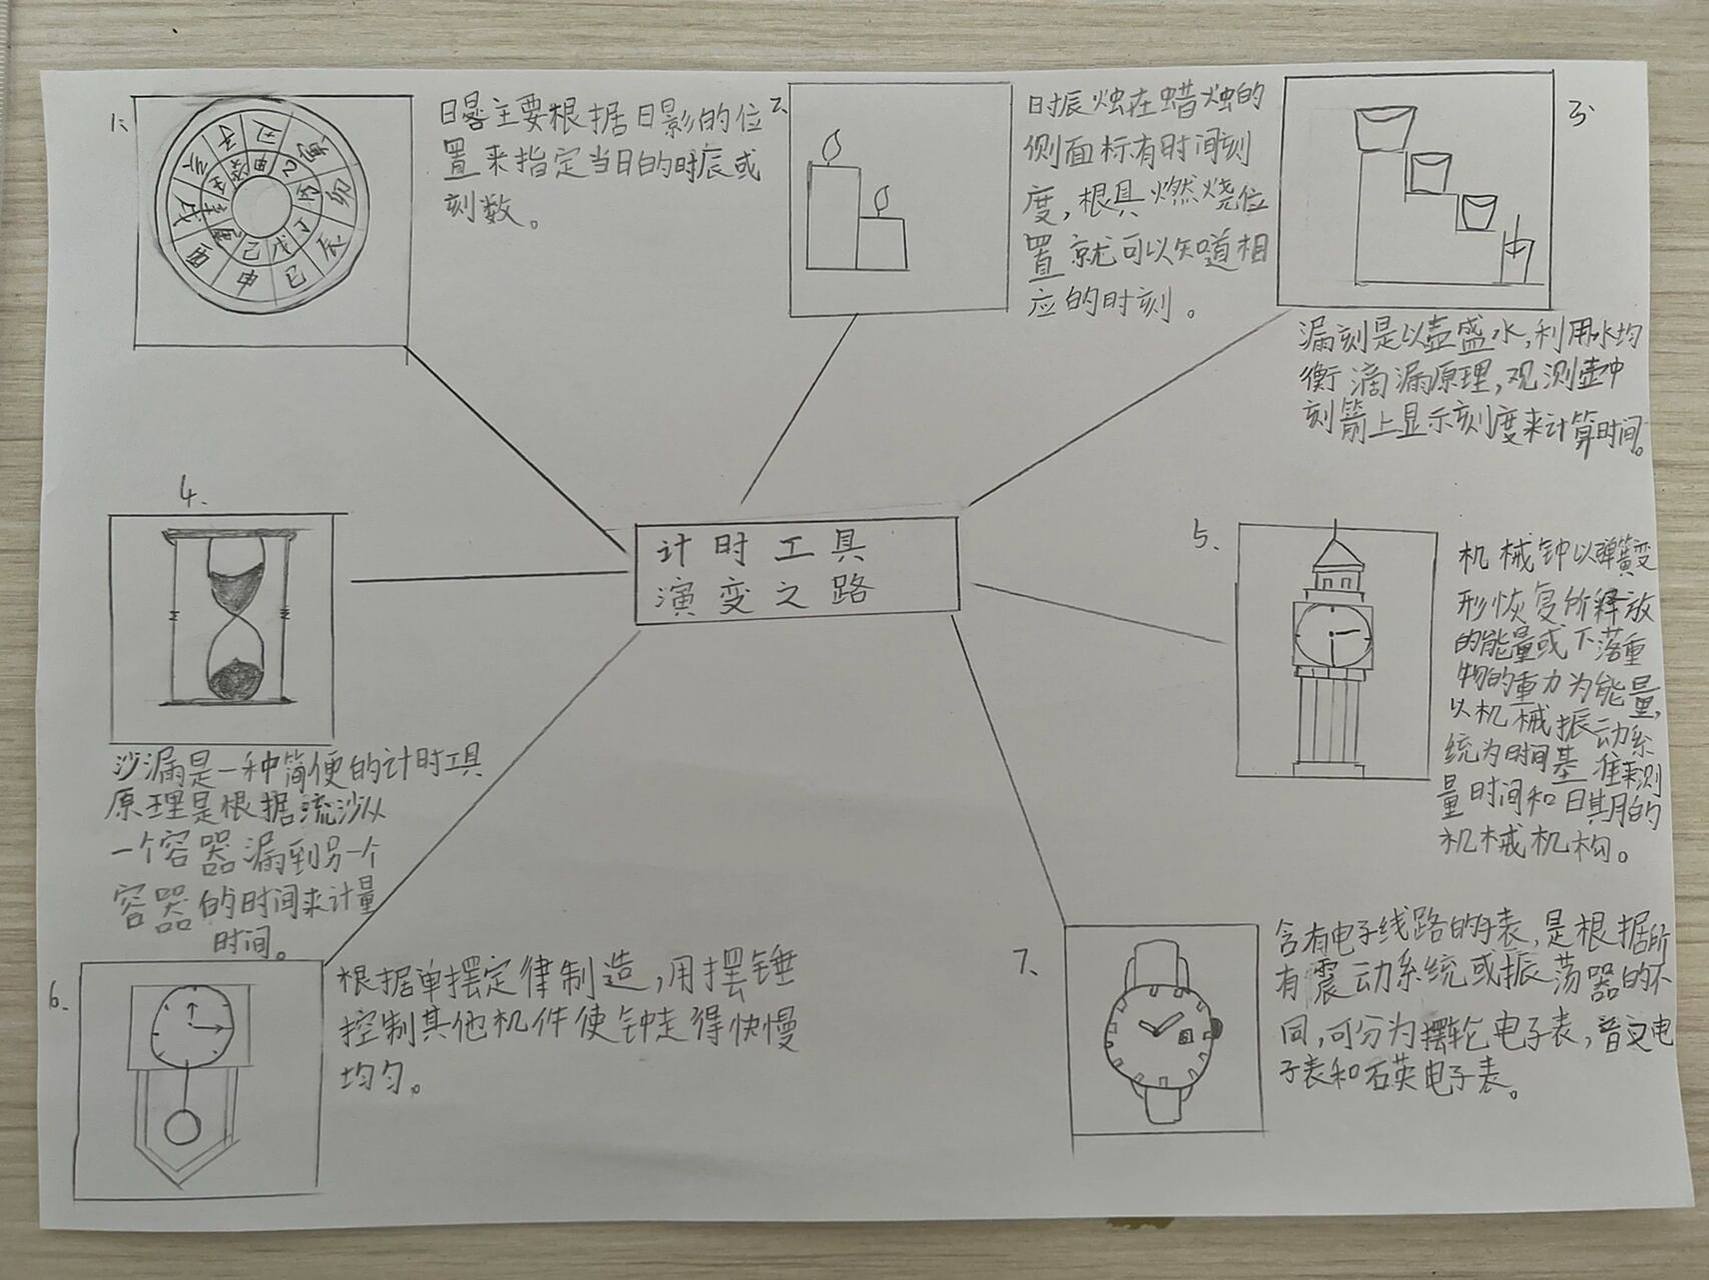 计时工具
演变之路
1、
日晷主要根据日影的位
置来指定当日的时辰或
刻数。
子
丑
寅
卯
辰
巳
申
酉
戌
亥
甲
乙
丙
丁
戊
己
壬
癸
2、
时辰烛在蜡烛的
侧面标有时间刻
度，根具燃烧位
置就可以知道相
应的时刻。
3、
漏刻是以壶盛水，利用水均
衡滴漏原理，观测壶中
刻箭上显示刻度来计算时间。
4、
沙漏是一种简便的计时工具
原理是根据流沙从
一个容器漏到另一个
容器的时间来计量
时间。
5、
机械钟以弹簧变
形恢复所释放
的能量或下落重
物的重力为能量，
以机械振动系
统为时间基准来测
量时间和日期的
机械机构。
6、
根据单摆定律制造，用摆锤
控制其他机件使钟走得快慢
均匀。
7、
含有电子线路的手表，是根据所
有震动系统或振荡器的不
同，可分为摆轮电子表，音叉电
子表和石英电子表。